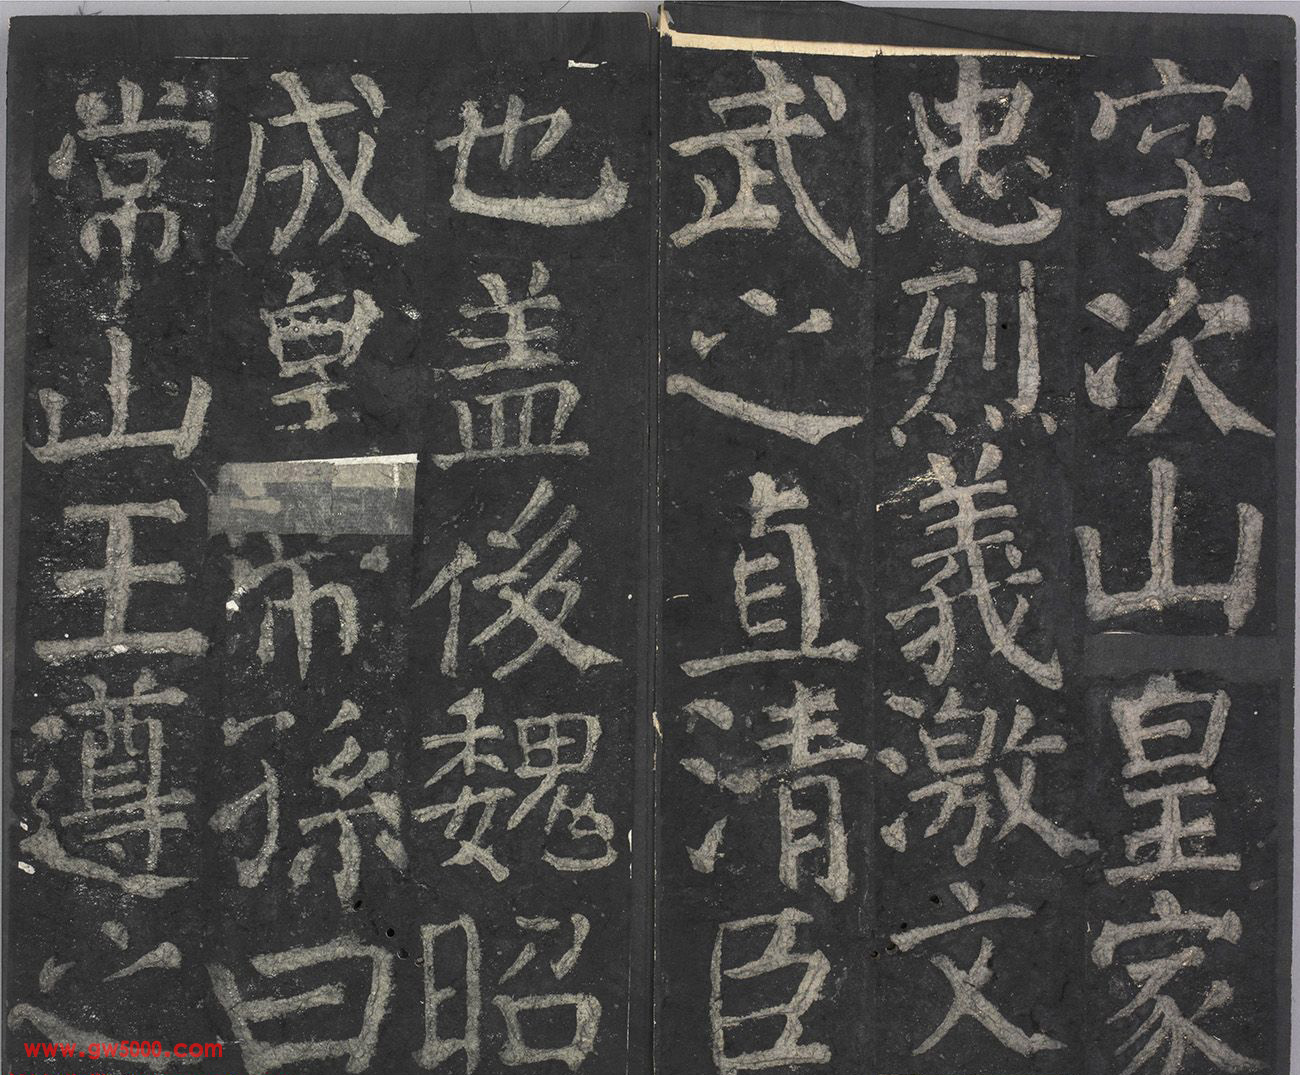 字次山皇家
忠烈義激文
武之直清臣
也盖後魏昭
成皇帝孫曰
常山王遵之
www.gw5000.com